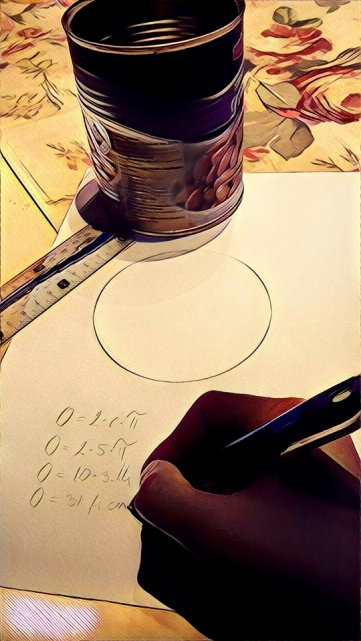 O = 2·r·π
O = 2·5·π
O = 10·3.14
O = 31,4 cm